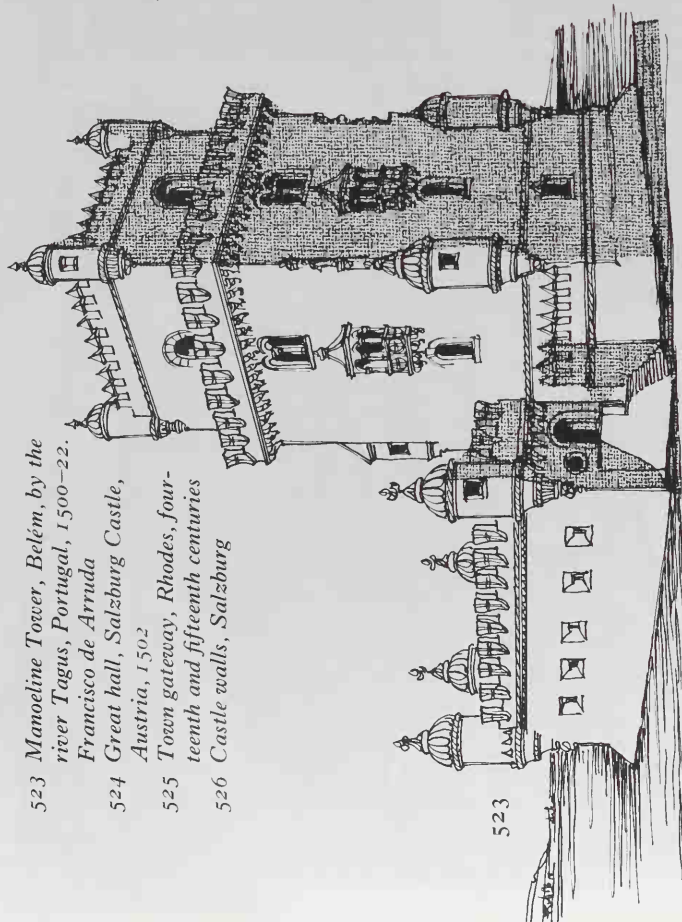 523 Manoeline Tower, Belém, by the
river Tagus, Portugal, 1500–22.
Francisco de Arruda
524 Great hall, Salzburg Castle,
Austria, 1502
525 Town gateway, Rhodes, four-
teenth and fifteenth centuries
526 Castle walls, Salzburg
523